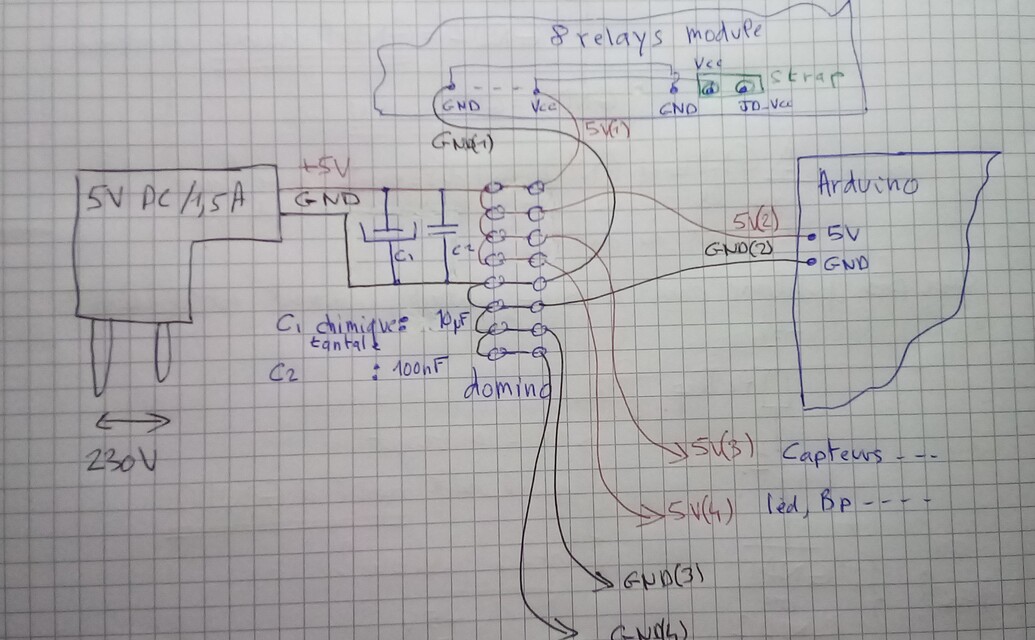 8 relays module
Vcc
Strap
GND
Vcc
GND
JD-Vcc
GND(1)
5V(1)
+5V
5V DC/1,5A
GND
Arduino
5V(2)
5V
GND(2)
GND
C1
C2
C1 chimique: 10µF
tantale
C2 : 100nF
domino
230V
5V(3) Capteurs ---
5V(4) led, Bp ----
GND(3)
GND(4)